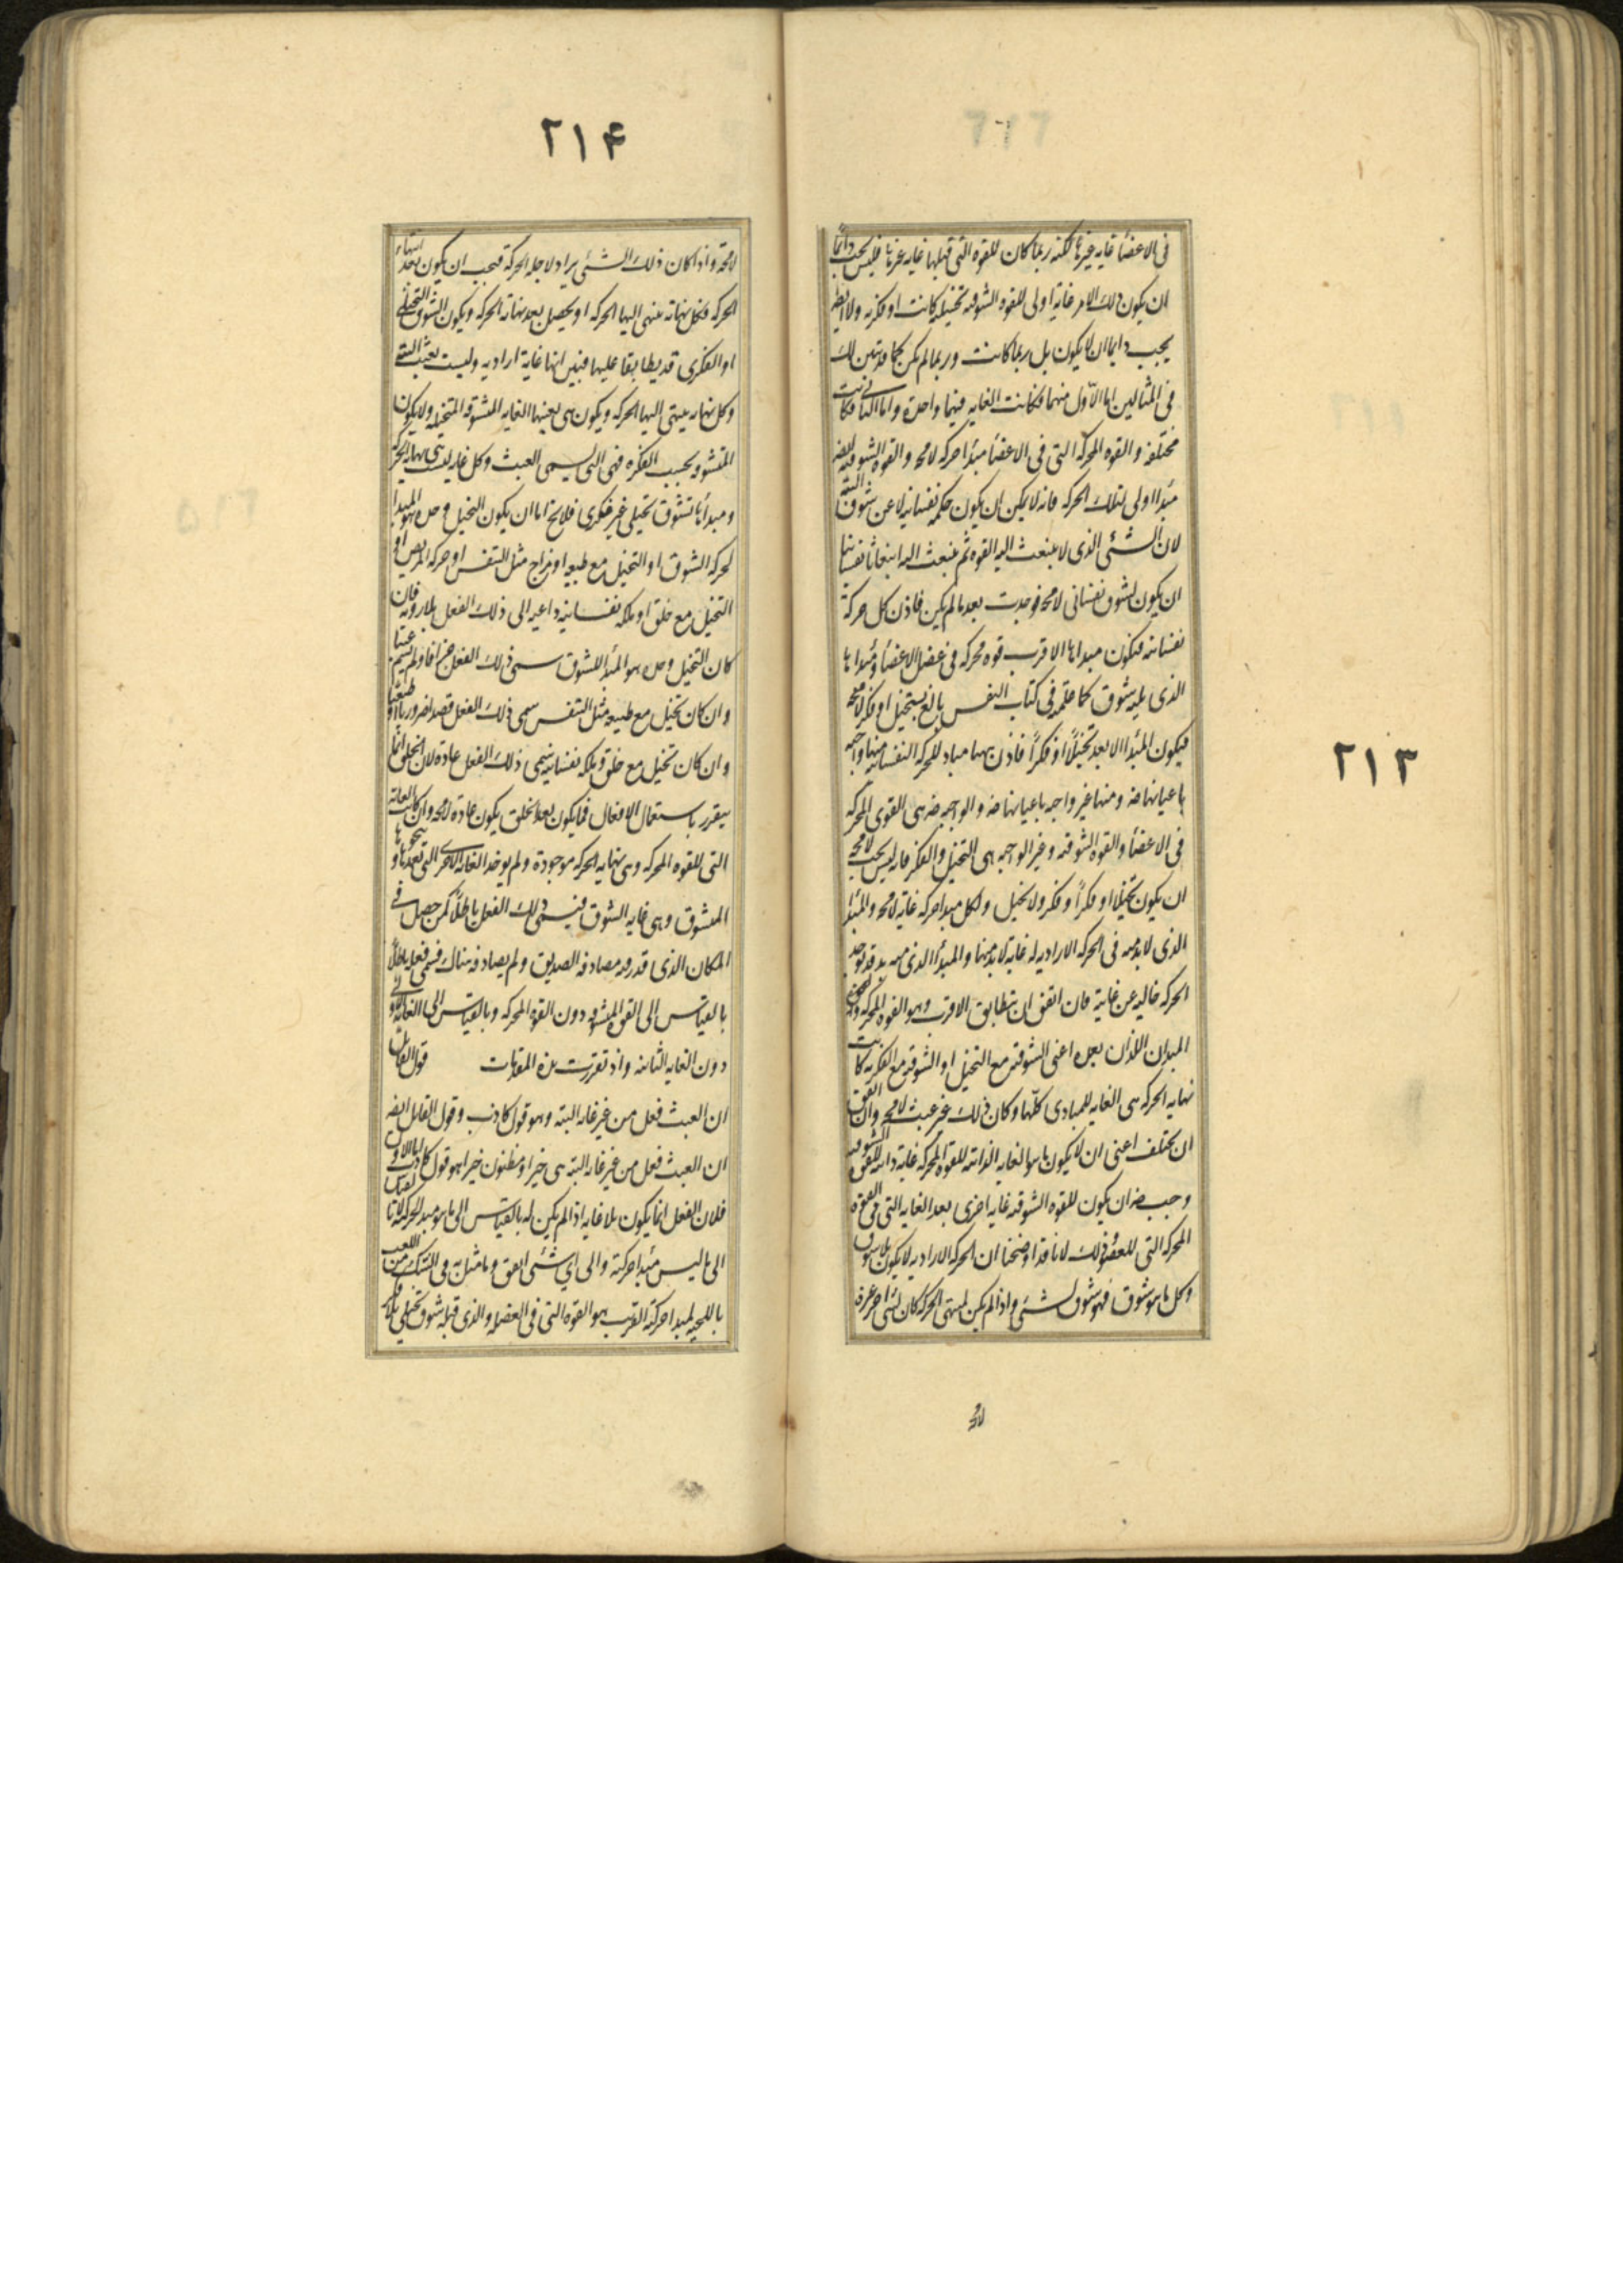 ٢١٣
فى الاعضأ غايه غيرها لكنه ربما كان للقوه التى قبلها غايه غيرها فليس يجب دائمًا
ان يكون ذلك الامر غاية اولى للقوه الشوقيه تخيليه كانت او فكريه ولا ايضا
يجب دايما ان لا يكون بل ربما كانت وربما لم يكن كما قد تبين لك
فى المثالين اما الاوّل منهما فكانت الغايه فيهما واحدة واما الثانى فكانت
مختلفه والقوه المحركة التى فى الاعضأ مبدأ حركه لامحه والقوه الشوقيه ايضا
مبدا اولى لتلك الحركه فانه لا يمكن ان يكون حركه نفسانيه لا عن شوق البته
لان الشئ الذى لا ينبعث اليه القوه ثم ينبعث اليه انبعاثا نفسانيا
ان يكون لشوق نفسانى لامحه وجدت بعد مالم يكن فاذن كل حركة
نفسانيه فيكون مبداها الاقرب قوه محركه فى عضل الاعضأ ومبداها
الذى يليه شوق كما علمه فى كتاب النفس تابع لتخيل او فكر لامحه
فيكون المبدأ الابعد تخيلًا او فكرًا فاذن ههنا مباد للحركه النفسانيه منها واجبه
باعيانها ضه ومنها غير واجبه باعيانها ضه والواجبه ضه هى القوى المحركه
فى الاعضأ والقوه الشوقيه وغير الواجبه هى التخيل والفكر فانه ليس يجب لامحه
ان يكون تخيلا او فكرًا وفكر ولا تخيل ولكل مبدا حركه غاية لامحه والمبدأ
الذى لابد منه فى الحركه الاراديه له غاية لابد منها والمبدأ الذى منه بد قد توجد
الحركه خاليه عن غايته فان اتفق ان يتطابق الاقرب وهو القوه المحركه
المبدان اللذان بعده اعنى الشوقيه مع التخيل او الشوقيه مع الفكريه كانت
نهايه الحركه هى الغايه للمبادى كلها وكان ذلك غير عبث لامحه وان اتفق
ان يختلف اعنى ان لا يكون ما هو الغايه الذاتيه للقوه المحركه غاية ذاتيه للقوه الشوقيه
وجب ضه ان يكون للقوه الشوقيه غايه اخرى بعد الغايه التى فى القوه
المحركه التى للعضو وذلك لانا قد اوضحنا ان الحركه الاراديه لا يكون بلا شوق
وكل ما هو شوق فهو شوق لشئ واذا لم يكن لمنتهى الحركه كان لشئ اخر غيره
لامحه
٢١۴
لامحة واذا كان ذلك الشئ يراد لاجله الحركة فيجب ان يكون بعد انتهاء
الحركه فكل نهاية ينتهى اليها الحركه او يحصل بعد نهاية الحركه ويكون الشوق التخيلى
او الفكرى قد يطابقا عليها فبين انها غاية اراديه وليست بعبث البته
وكل نهايه ينتهى اليها الحركه ويكون هى بعينها الغايه المتشوقه المتخيله ولا يكون
المتشوقه بحسب الفكره فهى التى يسمى العبث وكل غايه ليست هى نهاية الحركه
ومبدأها تشوق تخيلى غير فكرى فلا يخ اما ان يكون التخيل وحده هو المبدا
لحركة الشوق او التخيل مع طبيعه او مزاج مثل التنفس او حركه المريض او
التخيل مع خلق او ملكه نفسانيه داعيه الى ذلك الفعل بلا رويه فان
كان التخيل وحده هو المبدأ للشوق سمى ذلك الفعل جزافا ولم يسم عبثا
وان كان تخيل مع طبيعه مثل التنفس سمى ذلك الفعل قصدا ضروريا او طبيعيا
وان كان تخيل مع خلق وملكه نفسانيه سمى ذلك الفعل عادة لان الخلق انما
يتقرر باستعمال الافعال فما يكون بعد الخلق يكون عادة لامحه واذا كانت الغايه
التى للقوه المحركه وهى نهايه الحركه موجودة ولم يوجد الغايه الاخرى التى بعدها وينحوها
المتشوق وهى غايه الشوق فيسمى ذلك الفعل باطلًا كمن حصل فى
المكان الذى قدر فيه مصادفه الصديق ولم يصادفه هناك فسمى فعله باطلًا
بالقياس الى القوه المشوقه دون القوه المحركه وبالقياس الى الغايه الاولى
دون الغايه الثانيه واذ تقررت هذه المقدمات فقول القائل
ان العبث فعل من غير غايه البته وهو قول كاذب وقول القايل ايضا
ان العبث فعل من غير غايه البته هى خيرا او مظنون خيرا هو قول كاذب اما الاول
فلان الفعل انما يكون بلا غايه اذا لم يكن له بالقياس الى ما هو مبدا حركته لا بالقياس
الى ما ليس مبدا حركته والى اي شئ اتفق وما مثل به فى الشك من اللعب
باللحيه لمبدا حركته القريب هو القوه التى فى العضله والذى قبله شوق تخيلى بلا فكر